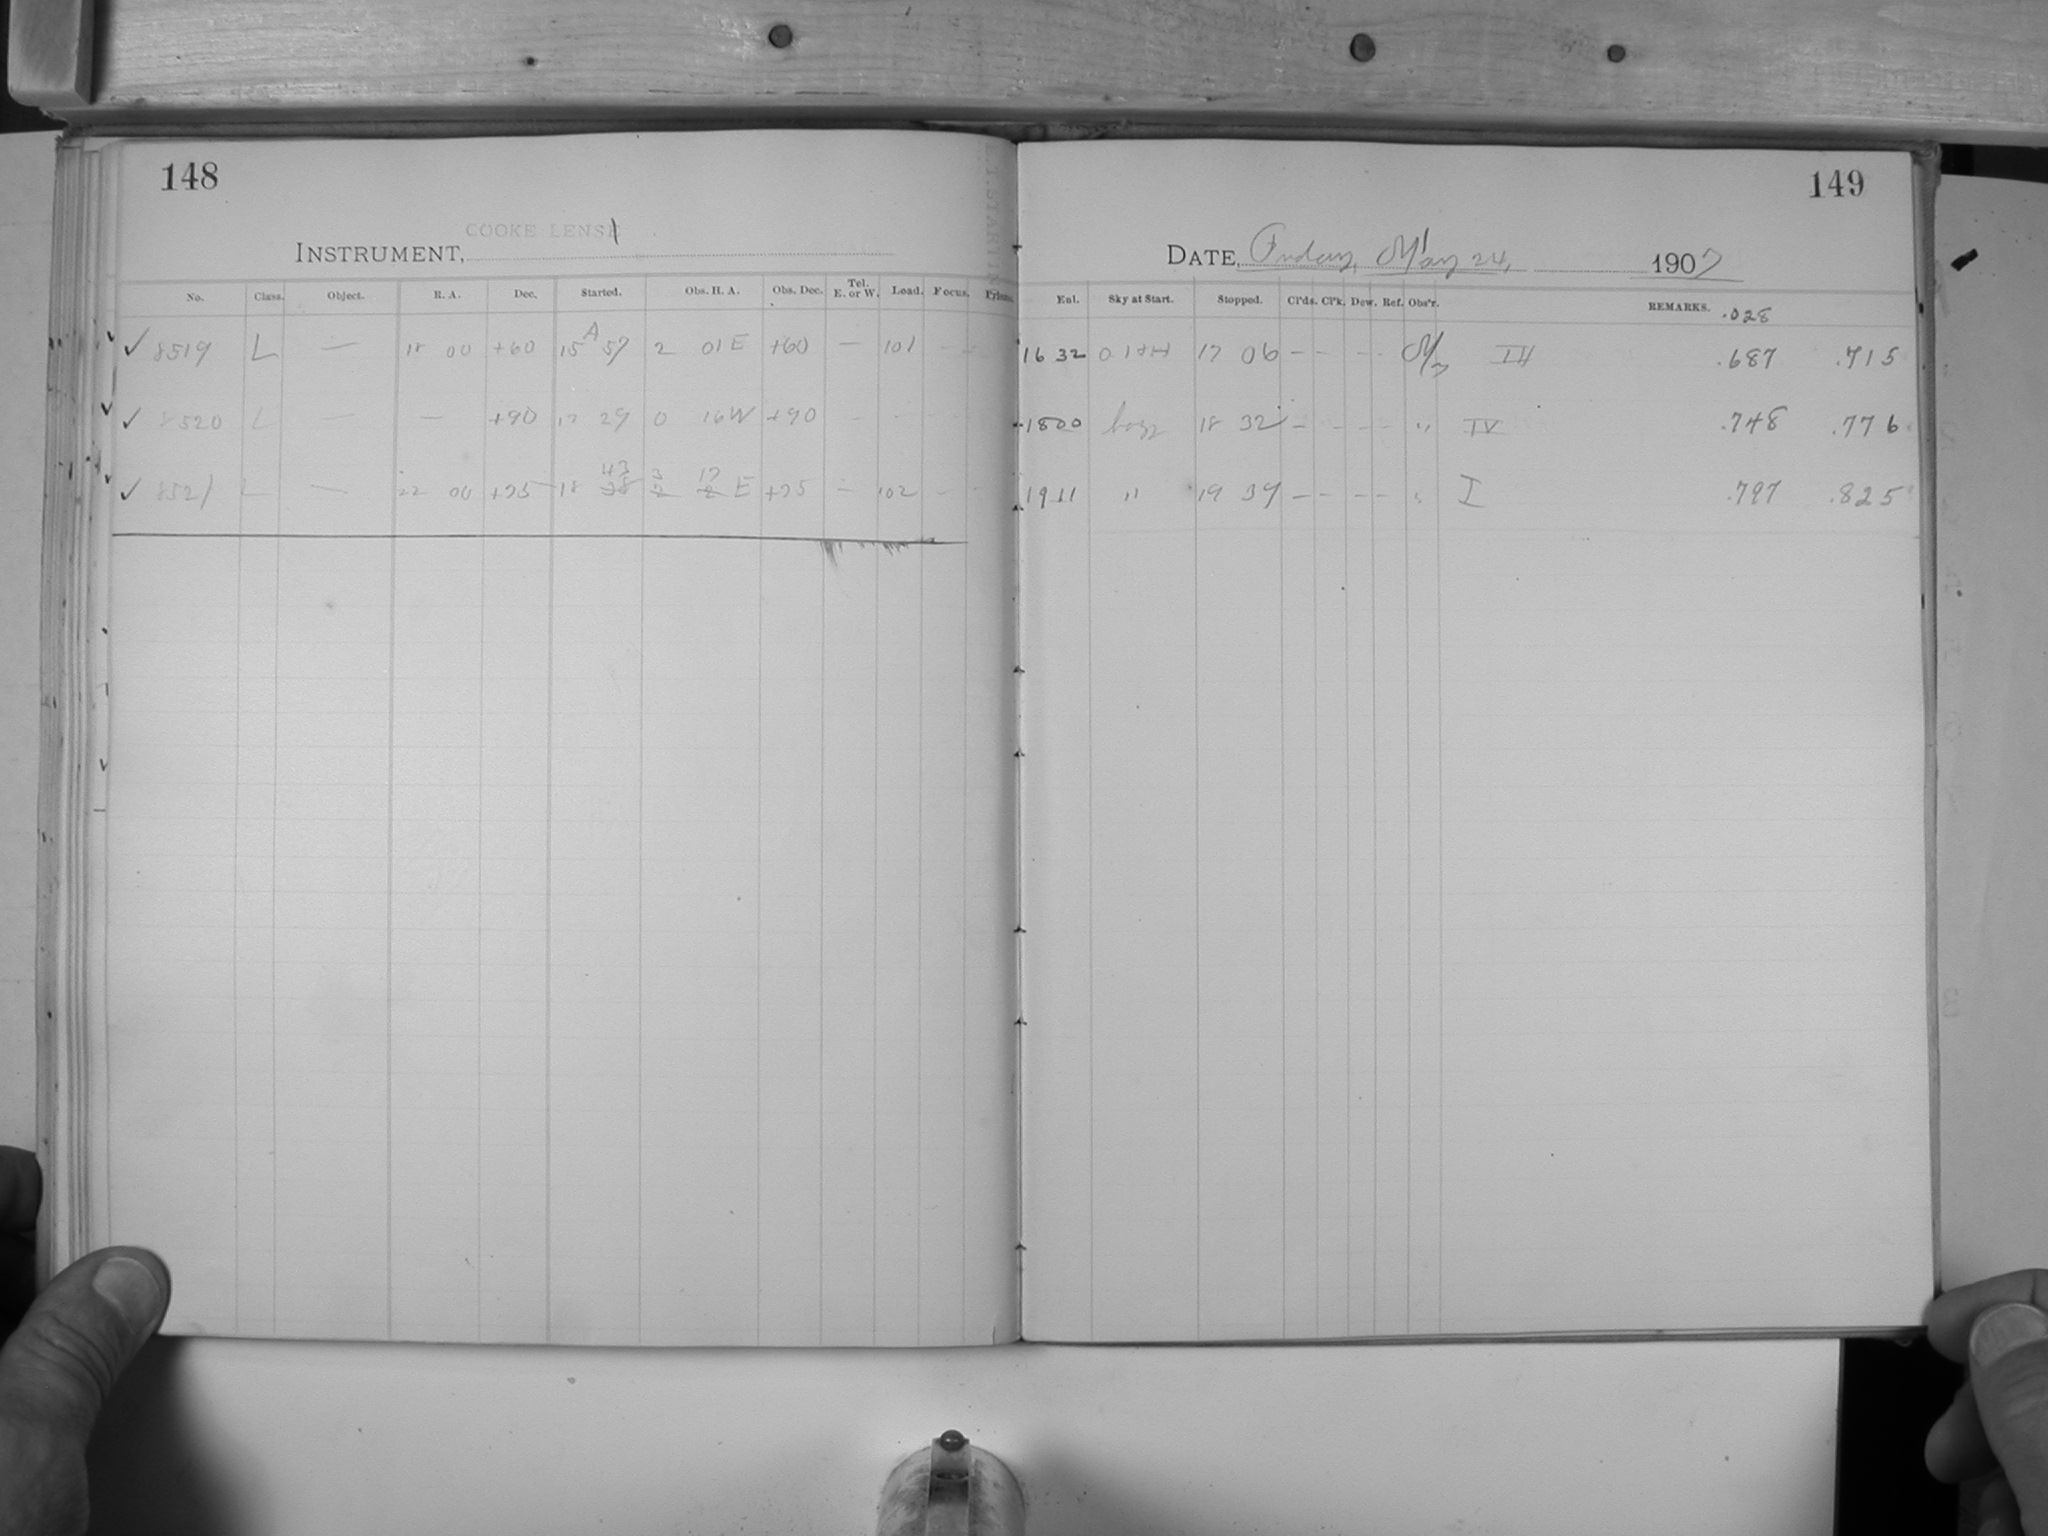 148
COOKE LENSE
INSTRUMENT,
No. Class. Object. R. A. Dec. Started. Obs. H. A. Obs. Dec. Tel. E. or W. Load. Focus.
✓ 8519 L — 18 00 +60 15 A 57 2 01 E +60 — 101 – –
✓ 8520 L — — +90 17 29 0 16 W +90 – – –
43 3 17
✓ 8521 L — 22 00 +75 18 38 2 2 E +75 — 102 – –
149
DATE, Friday, May 24, 1907
Enl. Sky at Start. Stopped. Cl'ds. Cl'k. Dew. Ref. Obs'r. REMARKS. .028
16 32 17 06 – – – – III .687 .715
18 00 hazy 18 32 – – – – " IV .748 .776
19 11 " 19 39 – – – – " I .797 .825